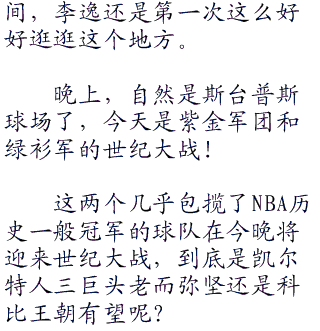 间，李逸还是第一次这么好
好逛逛这个地方。
晚上，自然是斯台普斯
球场了，今天是紫金军团和
绿衫军的世纪大战！
这两个几乎包揽了NBA历
史一般冠军的球队在今晚将
迎来世纪大战，到底是凯尔
特人三巨头老而弥坚还是科
比王朝有望呢？